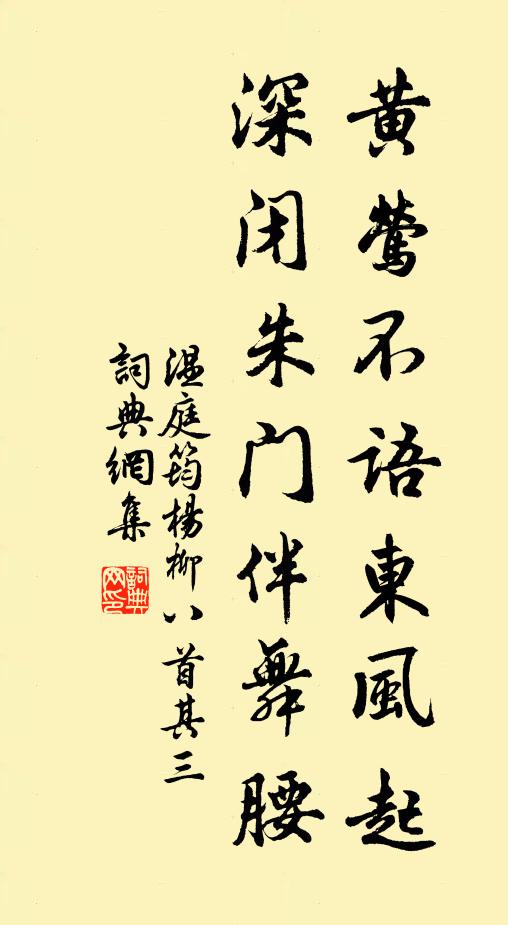 黄鶯不語東風起
深闭朱门伴舞腰
温庭筠楊柳八首其三
詞典網集
詞典网印